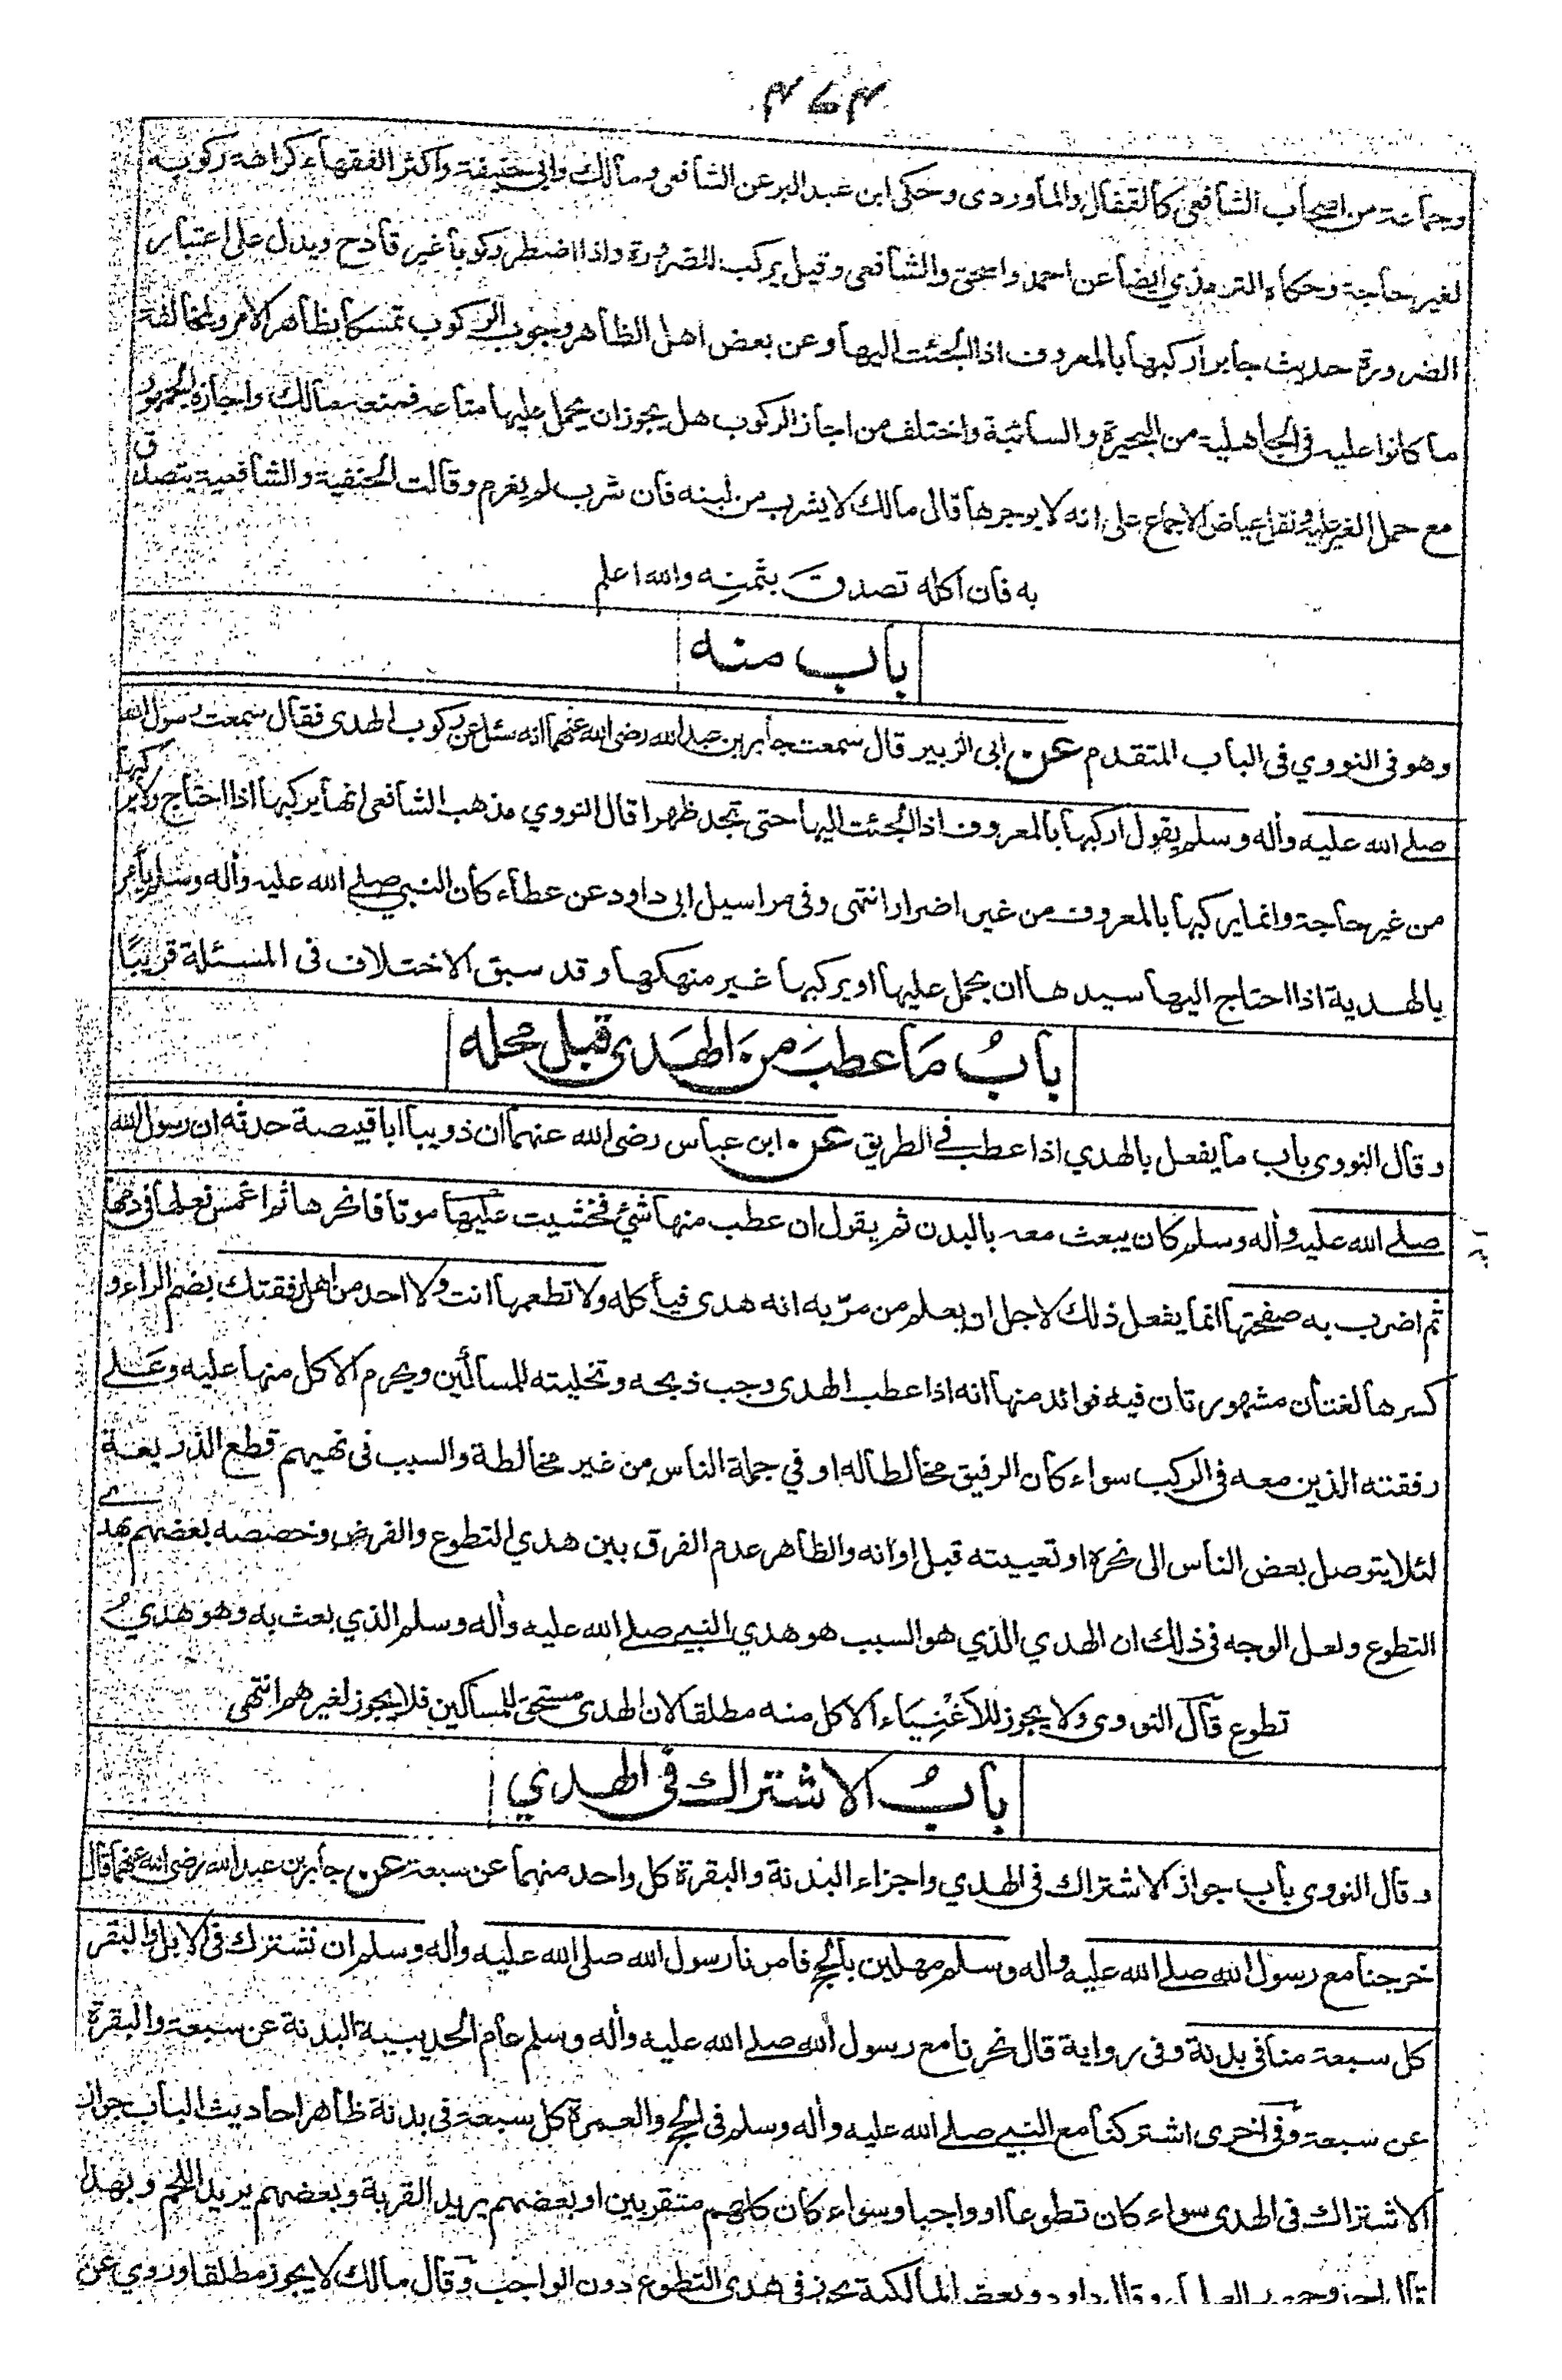 ٤٧٤
وجماعة من اصحاب الشافعى كالقفال والماوردى وحكى ابن عبد البر عن الشافعى ومالك وابى حنيفة واكثر الفقهاء كراهة ركوبه
لغير حاجة وحكاه الترمذي ايضا عن احمد واسحق والشافعى وقيل يركب للضرورة واذا اضطر ركوبا غير قادح ويدل على اعتبار
الضرورة حديث جابر اركبها بالمعروف اذا الجئت اليها وعن بعض اهل الظاهر وجوب الركوب تمسكا بظاهر الامر ولمخالفة
ما كانوا عليه فى الجاهلية من البحيرة والسائبة واختلف من اجاز الركوب هل يجوز ان يحمل عليها متاعه فمنعه مالك واجازه الجمهور
مع حمل الغير عليه ونقل عياض الاجماع على انه لا يوجرها قال مالك لا يشرب من لبنه فان شرب لم يغرم وقالت الحنفية والشافعية يتصدق
به فان اكله تصدق بثمنه والله اعلم
باب منه
وهو فى النووي فى الباب المتقدم عن ابى الزبير قال سمعت جابر بن عبد الله رضى الله عنهما انه سئل عن ركوب الهدى فقال سمعت رسول الله
صلى الله عليه واله وسلم يقول اركبها بالمعروف اذا الجئت اليها حتى تجد ظهرا قال النووي مذهب الشافعى انها يركبها اذا احتاج ولا يركبها
من غير حاجة وانما يركبها بالمعروف من غير اضرار انتهى وفى مراسيل ابى داود عن عطاء كان النبي صلى الله عليه واله وسلم يأمر
بالهدية اذا احتاج اليها سيدها ان يحمل عليها او يركبها غير منهكها وقد سبق الاختلاف فى المسئلة قريبًا
بابُ مَا عطبَ منَ الهَدى قبل محله
وقال النووى باب ما يفعل بالهدي اذا عطب في الطريق عن ابن عباس رضى الله عنهما ان ذويبا ابا قبيصة حدثه ان رسول الله
صلى الله عليه واله وسلم كان يبعث معه بالبدن ثم يقول ان عطب منها شئ فخشيت عليها موتا فانحرها ثم اغمس نعلها فى دمها
ثم اضرب به صفحتها انما يفعل ذلك لاجل ان يعلم من مرّ به انه هدى فيأكله ولا تطعمها انت ولا احد من اهل رفقتك بضم الراء و
كسرها لغتان مشهورتان فيه فوائد منها انه اذا عطب الهدى وجب ذبحه وتخليته للمسالكين ويحرم الاكل منها عليه وعلى
رفقته الذين معه فى الركب سواء كان الرفيق مخالطا له او في جملة الناس من غير مخالطة والسبب فى نهيهم قطع الذريعة
لئلا يتوصل بعض الناس الى نحره او تعييبته قبل اوانه والظاهر عدم الفرق بين هدي التطوع والفرض وخصصه بعضهم بهدى
التطوع ولعل الوجه فى ذلك ان الهدي الذي هو السبب هو هدي النبي صلى الله عليه واله وسلم الذي بعث به وهو هديُ
تطوع قال النووى ولا يجوز للاَغْنِيَاء الاكل منه مطلقا لان الهدى مستحق للمساكين فلا يجوز لغيرهم انتهى
بابُ الاشتراك فى الهدي
وقال النووى باب جواز الاشتراك فى الهدي واجزاء البدنة والبقرة كل واحد منهما عن سبعة عن جابر بن عبد الله رضى الله عنهما قال
خرجنا مع رسول الله صلى الله عليه واله وسلم مهلين بالحج فامرنا رسول الله صلى الله عليه واله وسلم ان نشترك فى الابل والبقر
كل سبعة منا فى بدنة وفى رواية قال نحرنا مع رسول الله صلى الله عليه واله وسلم عام الحديبية البدنة عن سبعة والبقرة
عن سبعة وفى اخرى اشتركنا مع النبي صلى الله عليه واله وسلم فى الحج والعمرة كل سبعة فى بدنة ظاهر احاديث الباب جواز
الاشتراك فى الهدى سواء كان تطوعا او واجبا وسواء كان كلهم متقربين او بعضهم يريد القربة وبعضهم يريد اللحم وبهذا
قال احمد وجمهور العلماء وقال داود وبعض المالكية يجوز فى هدى التطوع دون الواجب وقال مالك لا يجوز مطلقا وروي عن